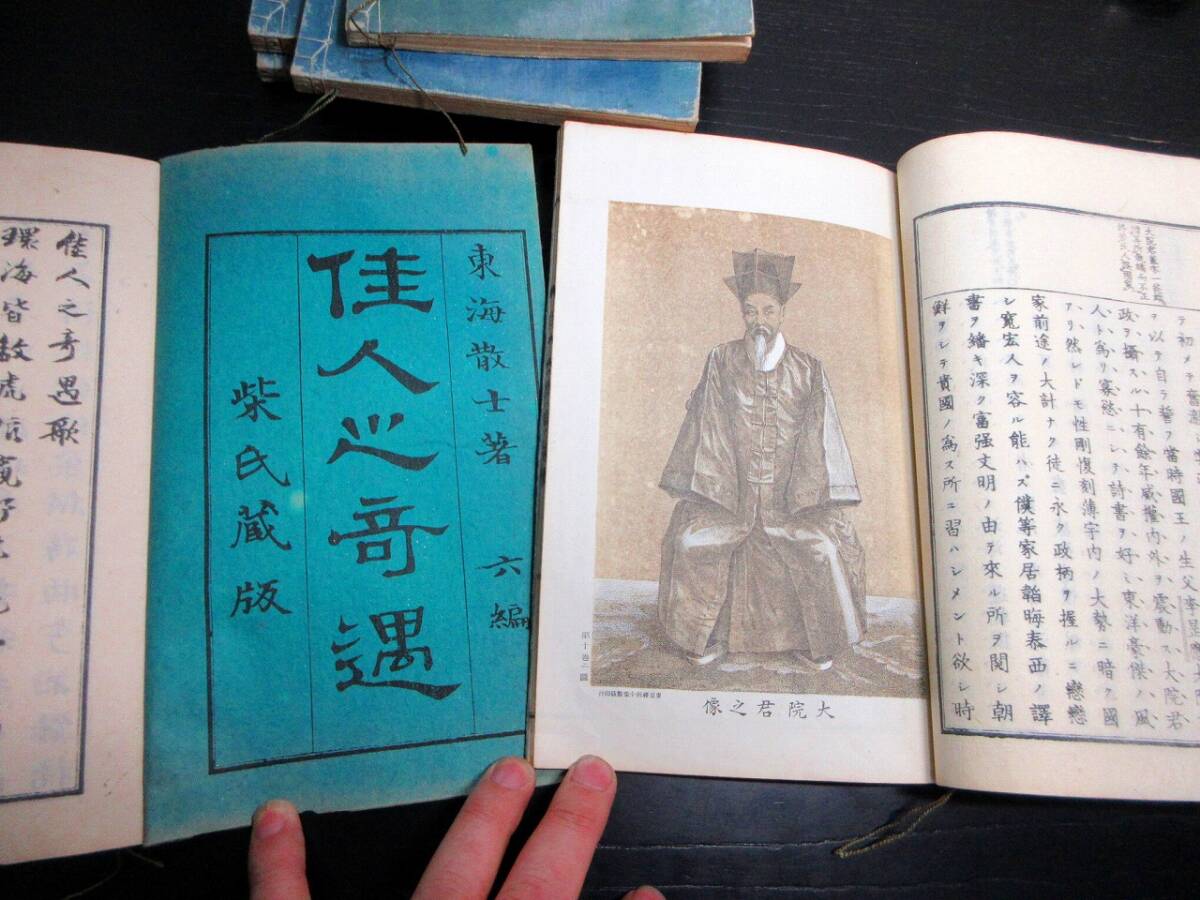 東海散士著 六編
佳人之奇遇
柴氏蔵版
佳人之奇遇歌
環海皆
テ初メテ
ヲ以テ自ラ誓ヲ當時國王ノ生父李
政ヲ攝スル十有餘年威權内外ヲ震動ス大院君
人ト爲リ寡慾ニシテ詩書ヲ好ミ東洋豪傑ノ風
アリ然レドモ性剛愎刻薄宇内ノ大勢ニ暗ク國
家前途ノ大計ナク徒ニ永ク政柄ヲ握ルニ戀戀
シ寛宏人ヲ容ル能ハズ僕等家居韜晦泰西ノ譯
書ヲ繙キ深ク富强文明ノ由テ來ル所ヲ閲シ朝
鮮ヲシテ貴國ノ爲ス所ニ習ハシメント欲シ時
第十巻二圖
大院君之像